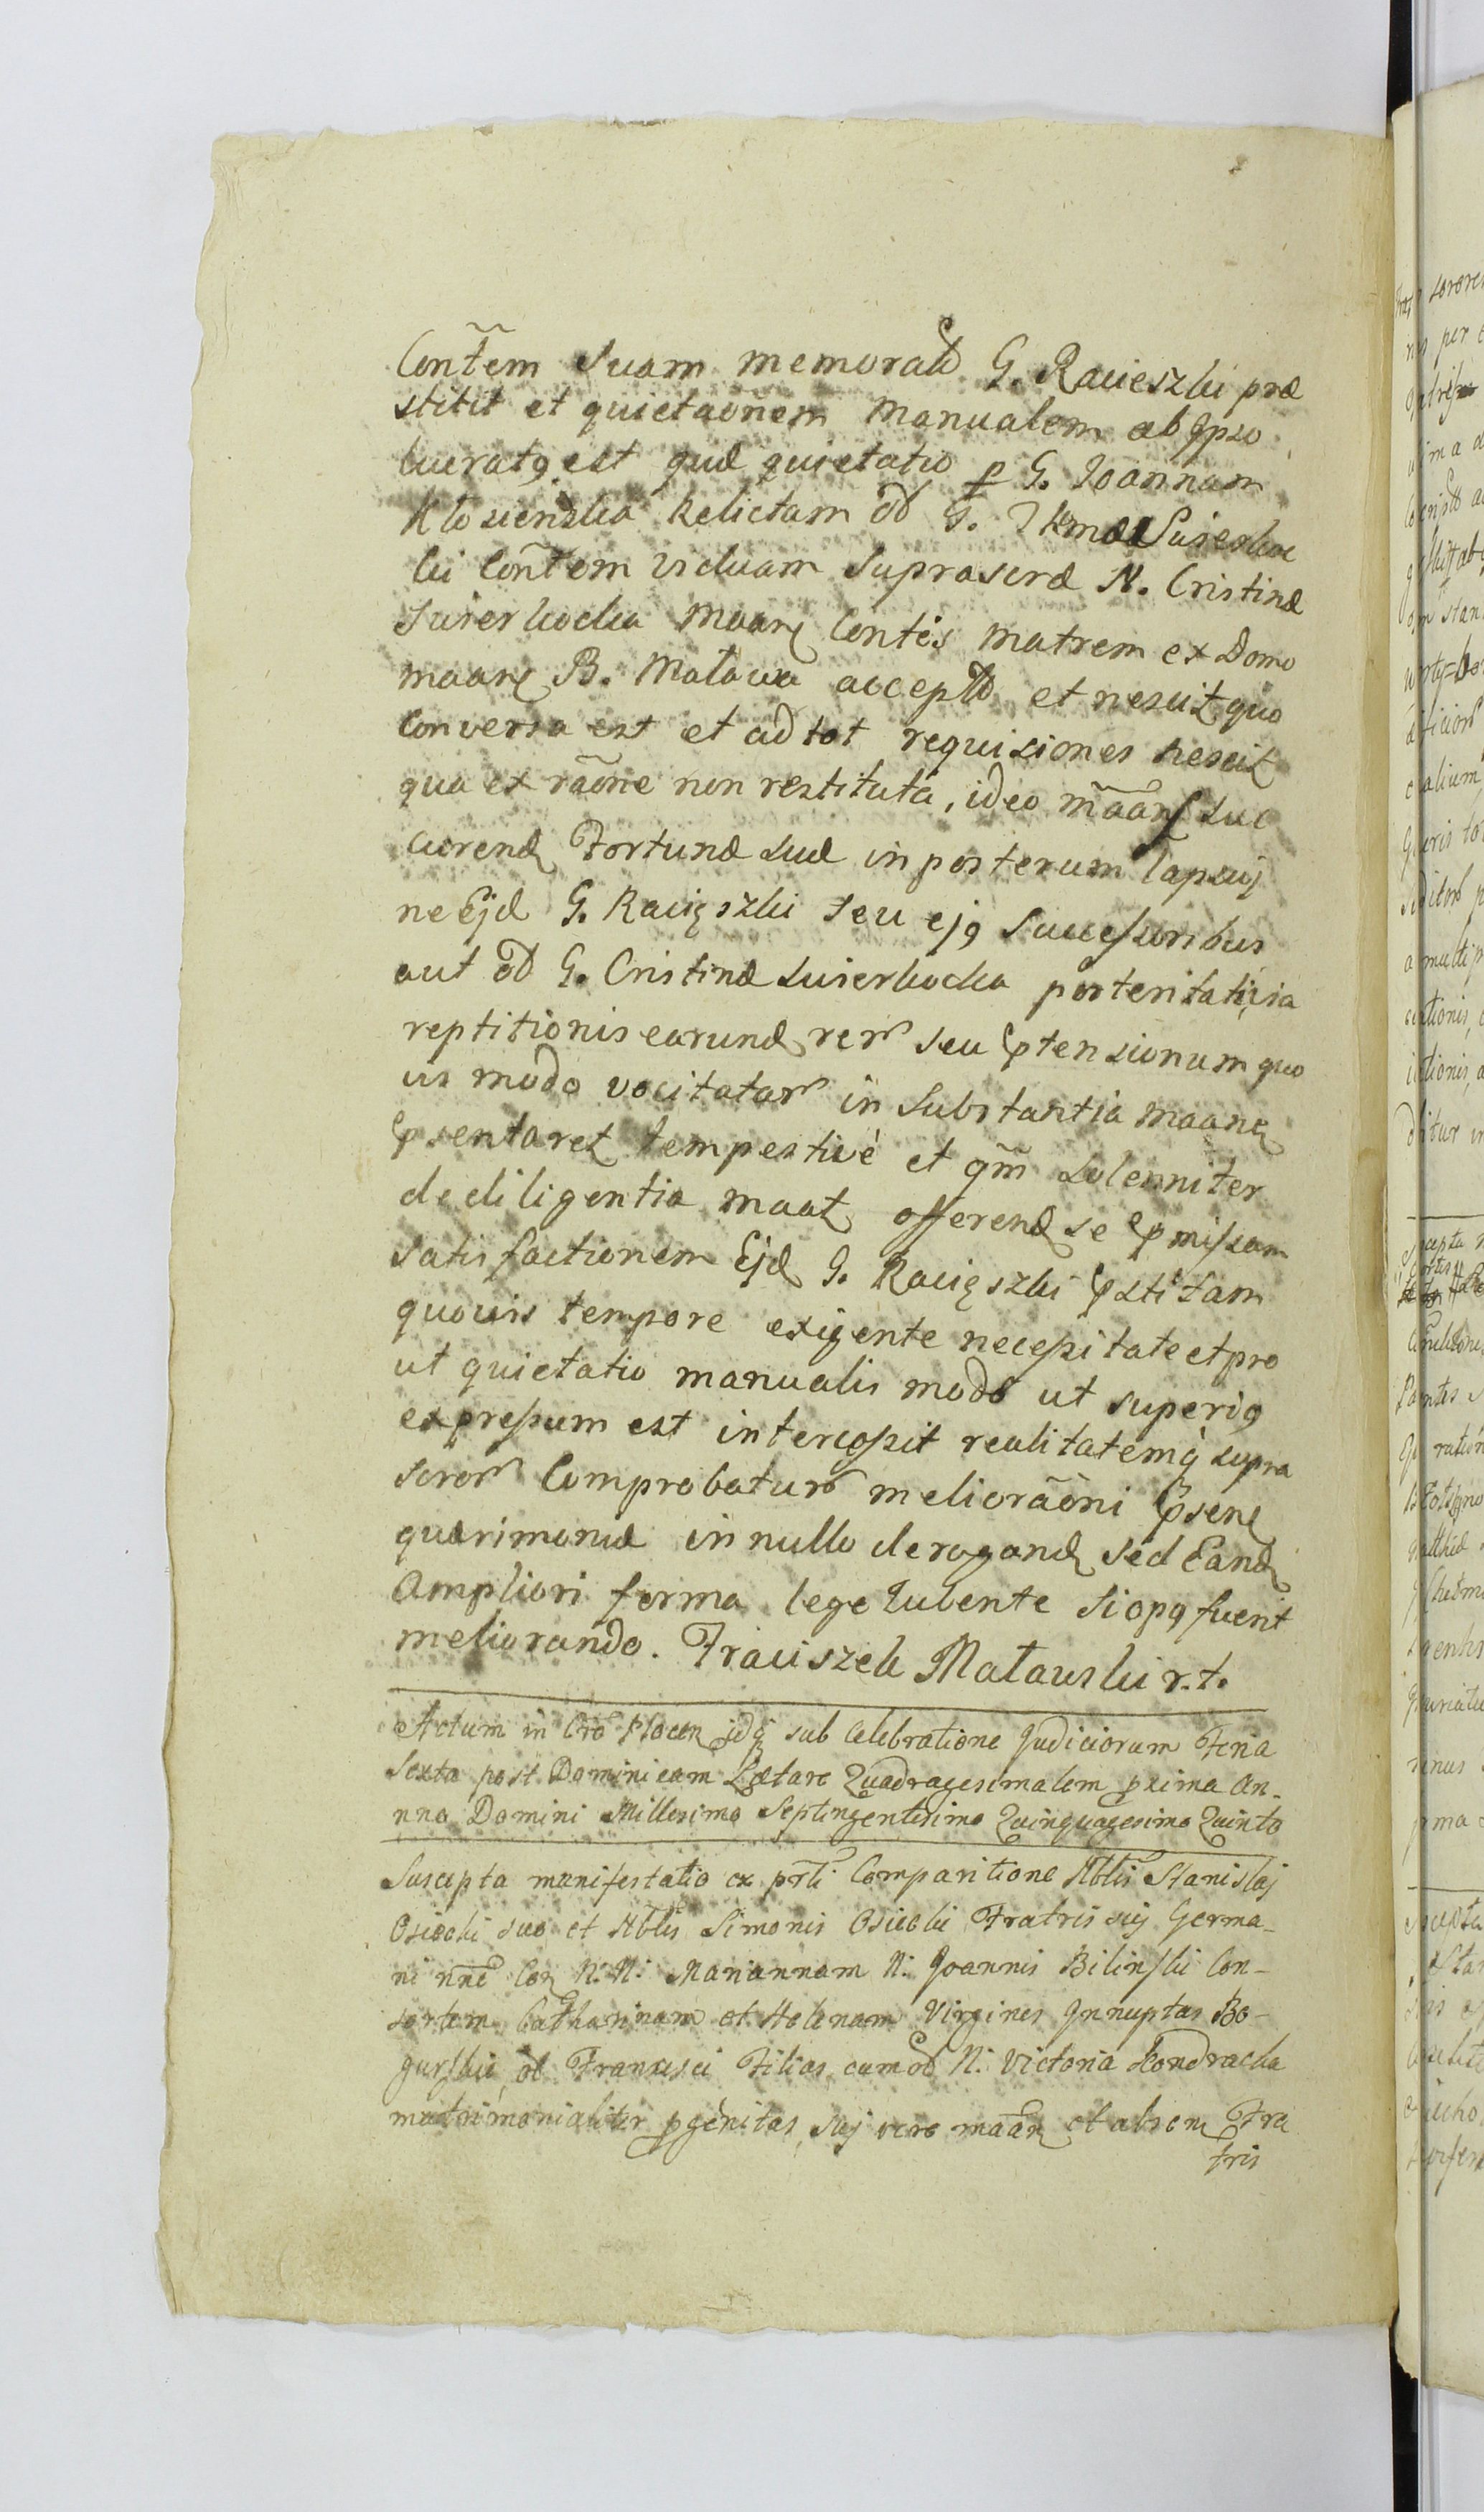 Contẽm suam memorato G. Racieszki præ
stitit et quietaõnem manualem ab Ipso
lucratq est quæ quietatio p G. Joannam
Klosienska Relictam od G. Thomæ Suierkoc
ki Contẽm viduam suprascræ N. Cristinæ
Suierkocka maanę Contẽs matrem ex Domo
maanę B. Matawa acceptto et nescit quo
Conversa est et ad tot requisiones nescit
qua ex raõne non restituta, ideo mãanę suc
curend Fortunæ suæ in posterum lapsuj
ne Ejd G. Racięszki seu ejq Successoribus
aut od G. Cristinæ Suierkocka posteritati via
reptitionis earund rer seu ptensionum quo
vis modo vocitatar in Substantia maanę
psentaret tempestivè et qm̃ solenniter
de diligentia maat offerend se pmissam
satisfactionem Ejd G. Racięszki pstitam
quovis tempore exigente necessitate et pro
ut quietatio manualis modo ut superiq
expressum est intercessit realitatemq supra
scror Comprobaturo melioraõni psenę
quærimoniæ in nullo derogand sed Eand
Ampliori forma lege Iubente si opq fuerit
meliorando. Fraciszek Matawski r.t.
Actum in Cro Plocen idq sub Celebratione Judiciorum Feria
Sexta post Dominicam Lætare Quadragesimalem pxima An-
nno Domini Millesimo Septingentesimo Quinquagesimo Quinto
Suscepta manifestatio ex prt̃i Comparitione Nblis Stanislaj
Osiecki suo et Nblis Simonis Osiecki Fratris suj Germa-
ni nñe Con N: N: Mariannam N: Joannis Bilinski Con-
sortem Catharinam et Helenam Virgines Innuptas Bo-
gurskie ol Francisci Filias cum od N: Victoria Kondracka
matrimonialiter pgenitas, suj vero maãn et absen Fra
tris